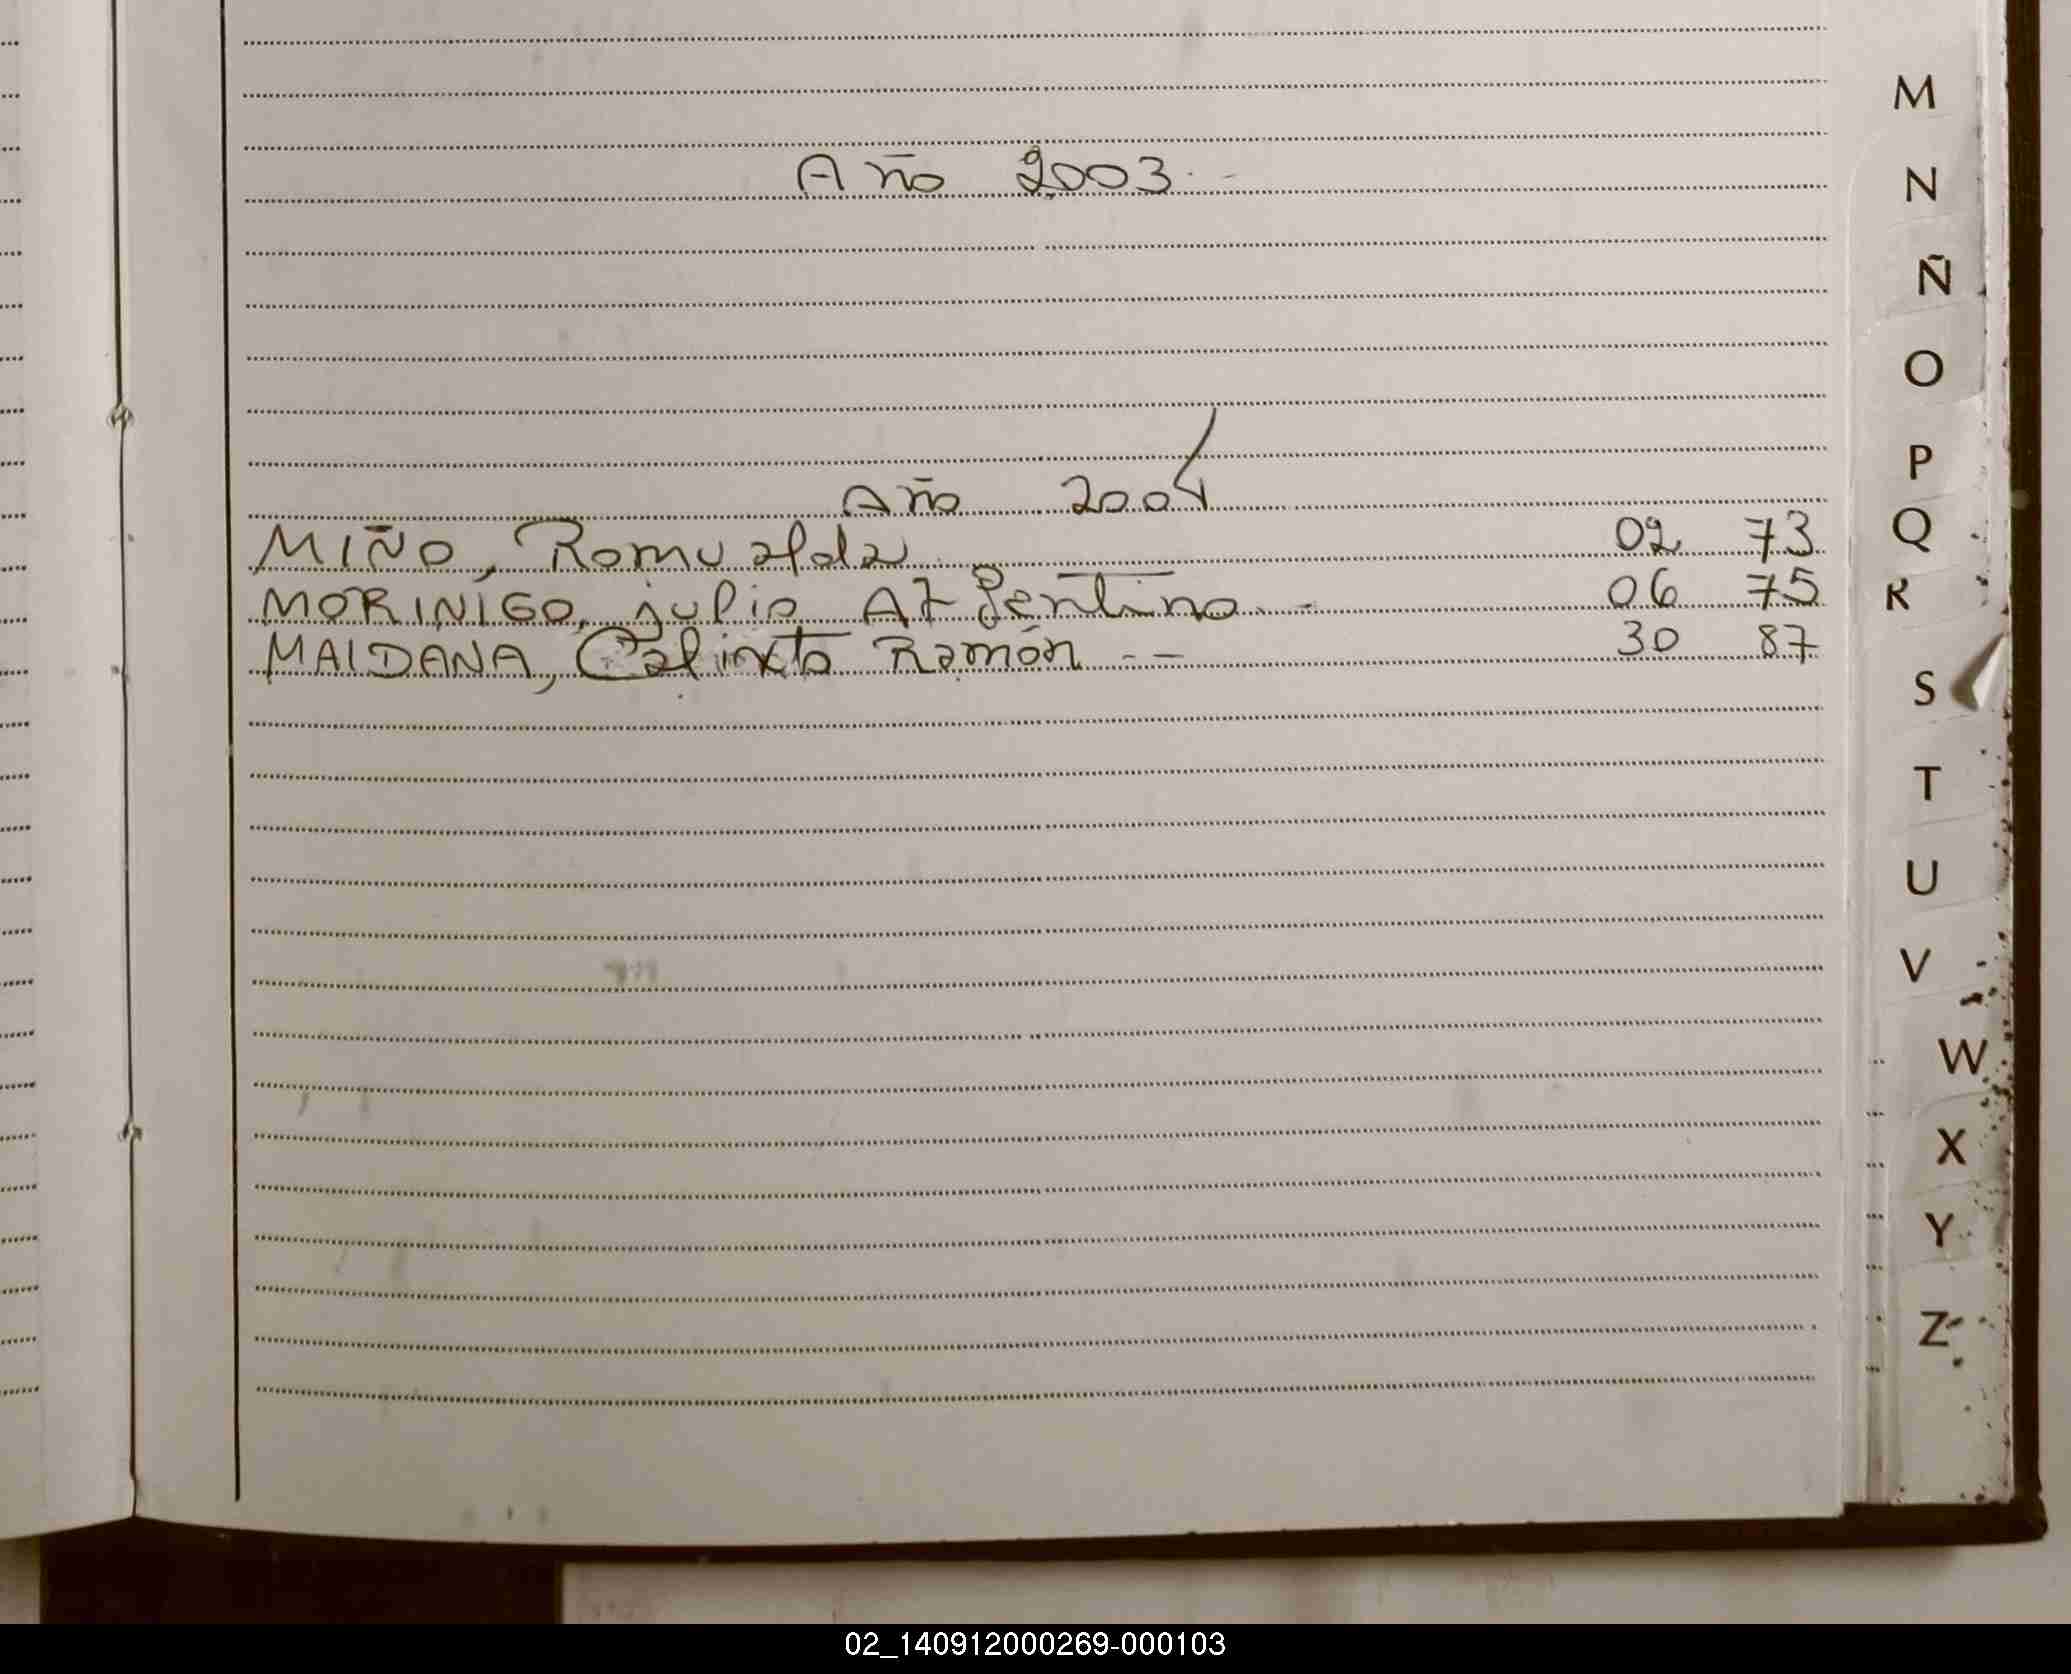 Año 2003.-
Año 2004
MIÑO, Romualda 02 73
MORINIGO, julio Argentino.- 06 75
MAIDANA, Calixto Ramón -- 30 87
M
N
Ñ
O
P
Q
R
S
T
U
V
W
X
Y
Z
02_140912000269-000103